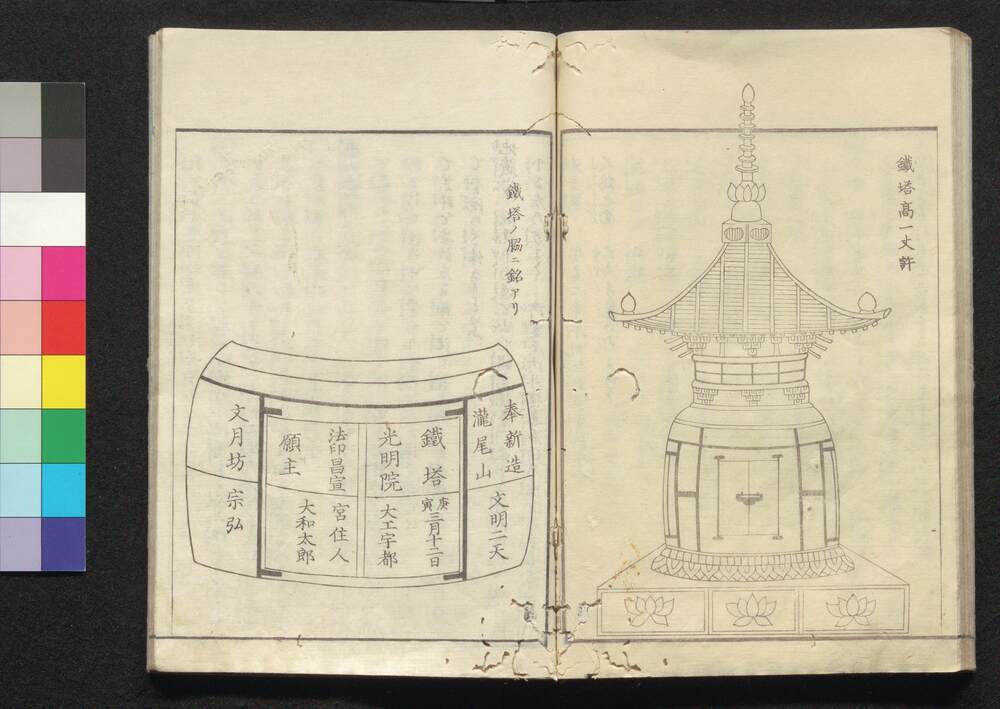 鐵塔高一丈許
鐵塔ノ脇ニ銘アリ
奉新造
瀧尾山
鐵塔
光明院
法印昌宣
願主
文月坊
文明二天
庚寅三月十二日
大工宇都
宮住人
大和太郎
宗弘